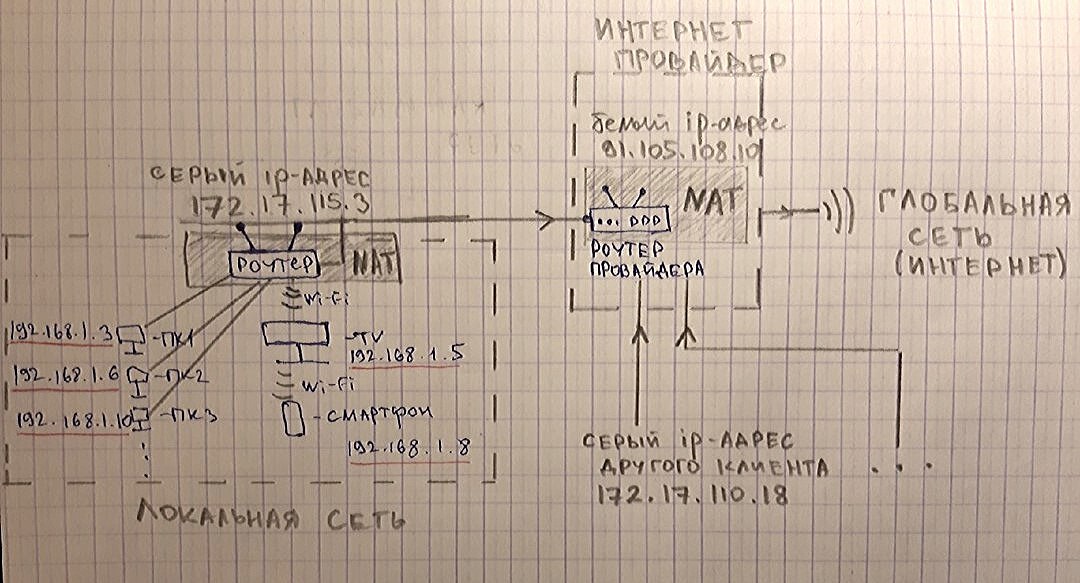 ИНТЕРНЕТ
ПРОВАЙДЕР
белый ip-адрес
91.105.108.10
NAT
РОУТЕР
ПРОВАЙДЕРА
ГЛОБАЛЬНАЯ
СЕТЬ
(ИНТЕРНЕТ)
СЕРЫЙ ip-АДРЕС
172.17.115.3
РОУТЕР
NAT
Wi-Fi
192.168.1.3
-ПК1
-TV
192.168.1.5
192.168.1.6
-ПК2
Wi-Fi
192.168.1.10
-ПК3
-СМАРТФОН
192.168.1.8
ЛОКАЛЬНАЯ СЕТЬ
СЕРЫЙ ip-АДРЕС
ДРУГОГО КЛИЕНТА
172.17.110.18